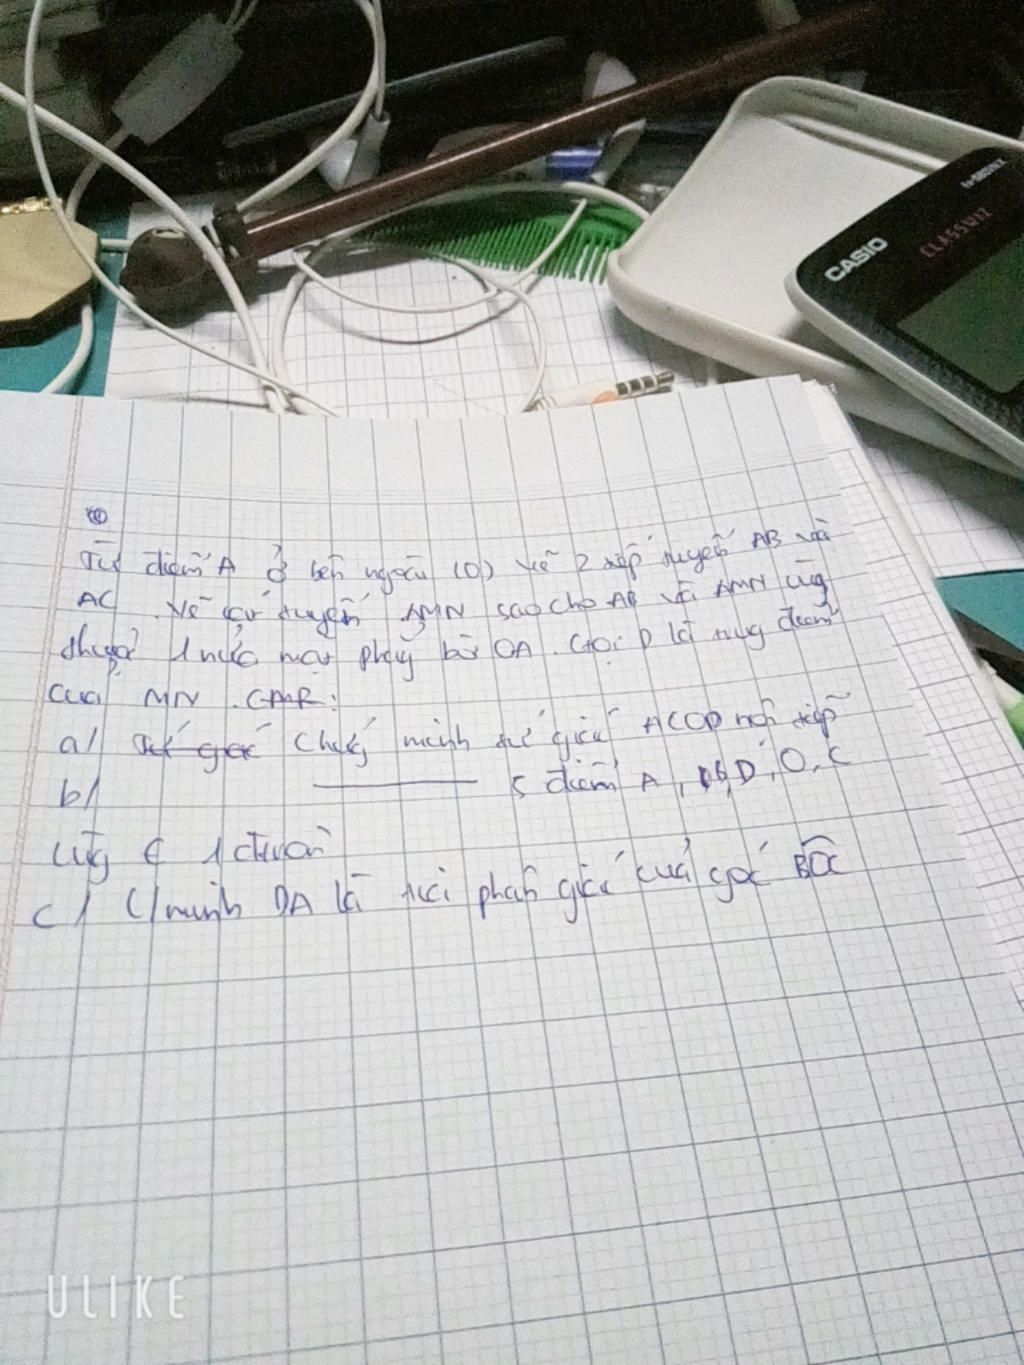 CASIO
fx-580VNX
CLASSWIZ
Từ điểm A ở bên ngoài (O) vẽ 2 tiếp tuyến AB và
AC. Vẽ cát tuyến AMN sao cho AB và AMN cùg
thuộc 1 nửa mặt phẳg bờ OA. Gọi D là trug điểm
của MN. CMR:
a/ Tứ giác Chứg minh tứ giác ACOD nội tiếp
b/ 5 điểm A, B, D, O, C
cùg ∈ 1 đtròn
c/ C/minh DA là tia phân giác của góc BDC
ULIKE